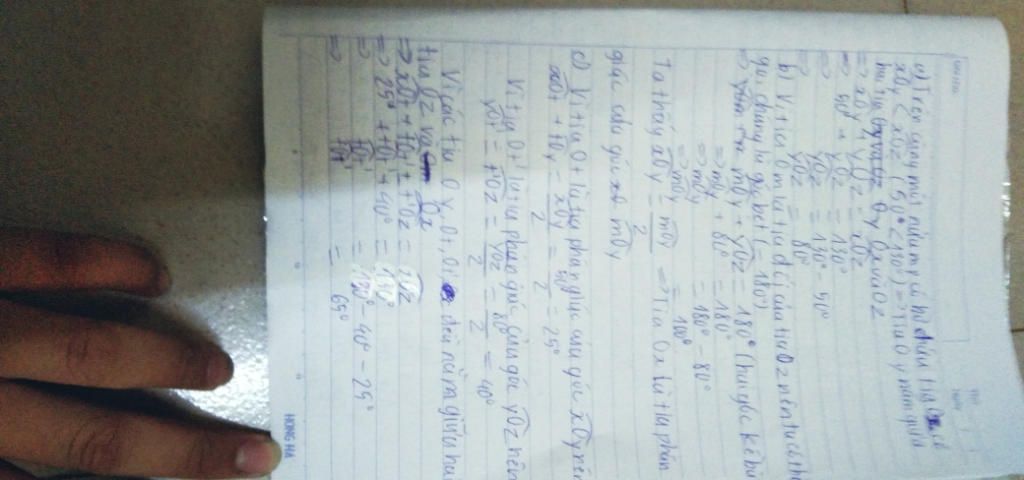 a) Trên cùng một nửa mp có bờ chứa tia Ox có
xOy < xOz (50° < 130°) => Tia Oy nằm giữa
hai tia Ox và Oz
=> xOy + yOz = xOz
=> 50° + yOz = 130°
=> yOz = 130° - 50°
=> yOz = 80°
b) Vì tia Om là tia đối của tia Oz nên ta có
góc là góc bẹt (= 180°)
=> mOy + yOz = 180° (hai góc kề bù)
=> mOy + 80° = 180°
=> mOy = 180° - 80°
=> mOy = 100°
Ta thấy xOy = mOy / 2 => Tia Ox là tia phân
giác của góc mOy
c) Vì tia Ot là tia phân giác của góc xOy nên
xOt = tOy = xOy / 2 = / 2 = 25°
Vì tia Ot' là tia phân giác của góc yOz nên
yOt' = t'Oz = yOz / 2 = 80° / 2 = 40°
Vì các tia Oy, Ot, Ot' đều nằm giữa hai
tia Oz và Ox
=> xOt + tOt' + t'Oz = xOz
=> 25° + tOt' + 40° = 130°
=> tOt' = 130° - 40° - 25°
=> tOt' = 65°
HONG HA